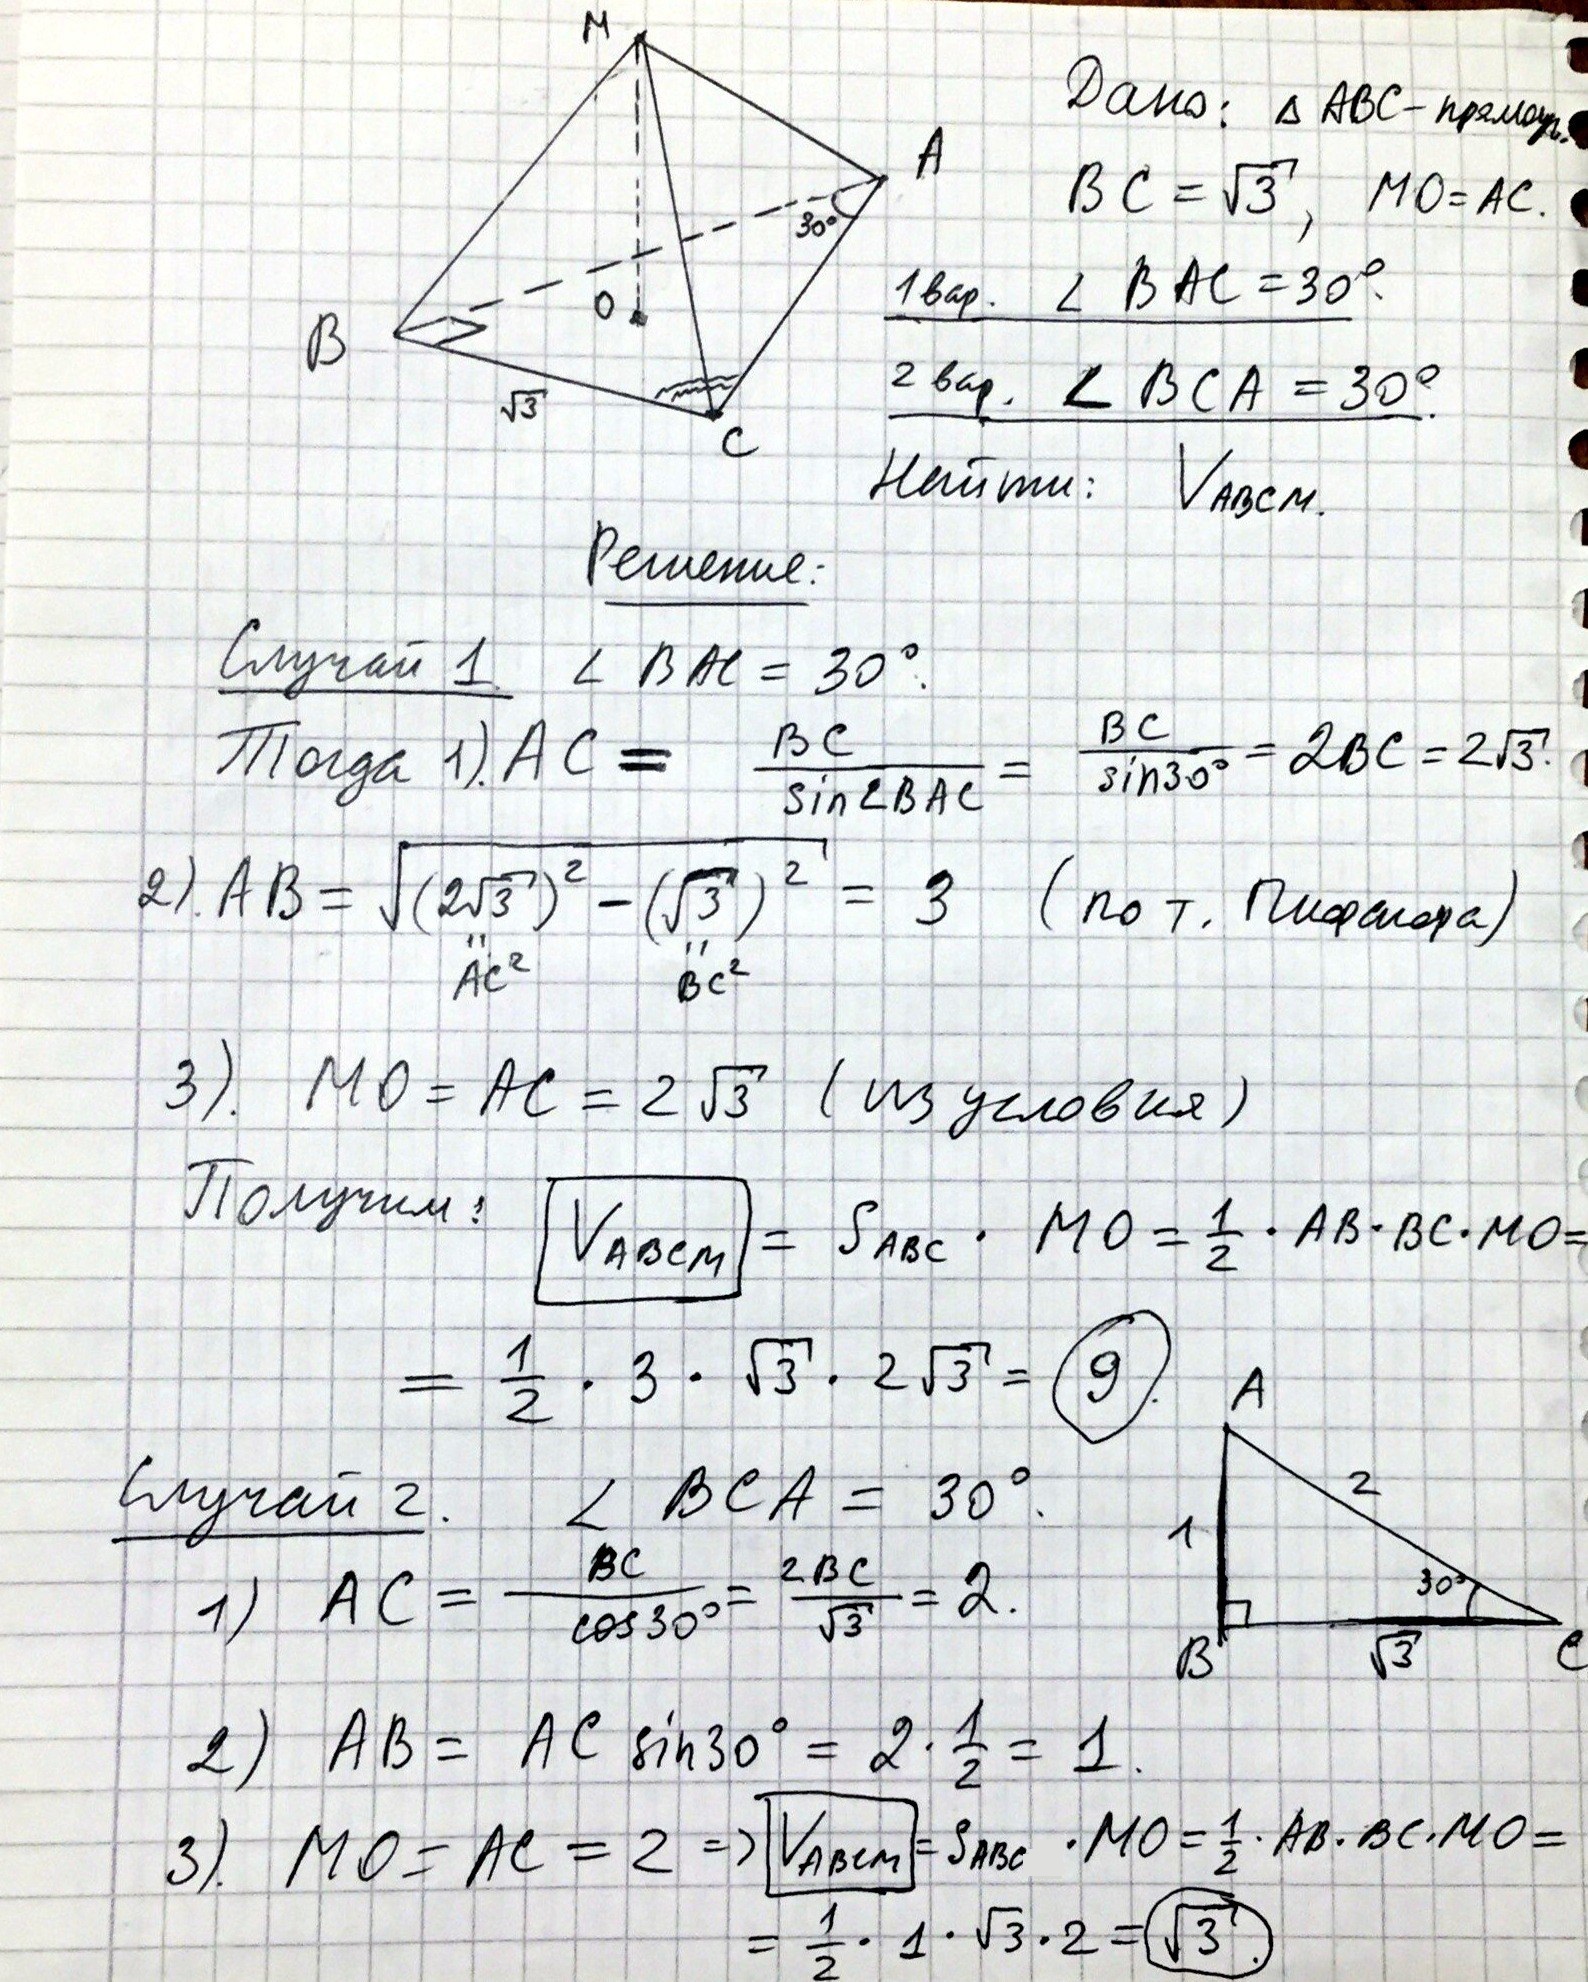 M
A
30°
O
B
√3
C
Дано: Δ ABC – прямоуг.
BC = √3, MO = AC.
1 вар. ∠ BAC = 30°.
2 вар. ∠ BCA = 30°.
Найти: V_ABCM.
Решение:
Случай 1 ∠ BAC = 30°.
Тогда 1). AC = BC / sin∠BAC = BC / sin30° = 2BC = 2√3.
2). AB = √((2√3)² − (√3)²) = 3 (по т. Пифагора)
" "
AC² BC²
3). MO = AC = 2√3 (из условия)
Получим: V_ABCM = S_ABC · MO = 1/2 · AB · BC · MO =
= 1/2 · 3 · √3 · 2√3 = 9.
Случай 2. ∠ BCA = 30°.
1) AC = BC / cos30° = 2BC / √3 = 2.
A
2
1
30°
B
√3
C
2) AB = AC sin30° = 2 · 1/2 = 1.
3). MO = AC = 2 => V_ABCM = S_ABC · MO = 1/2 · AB · BC · MO =
= 1/2 · 1 · √3 · 2 = √3.